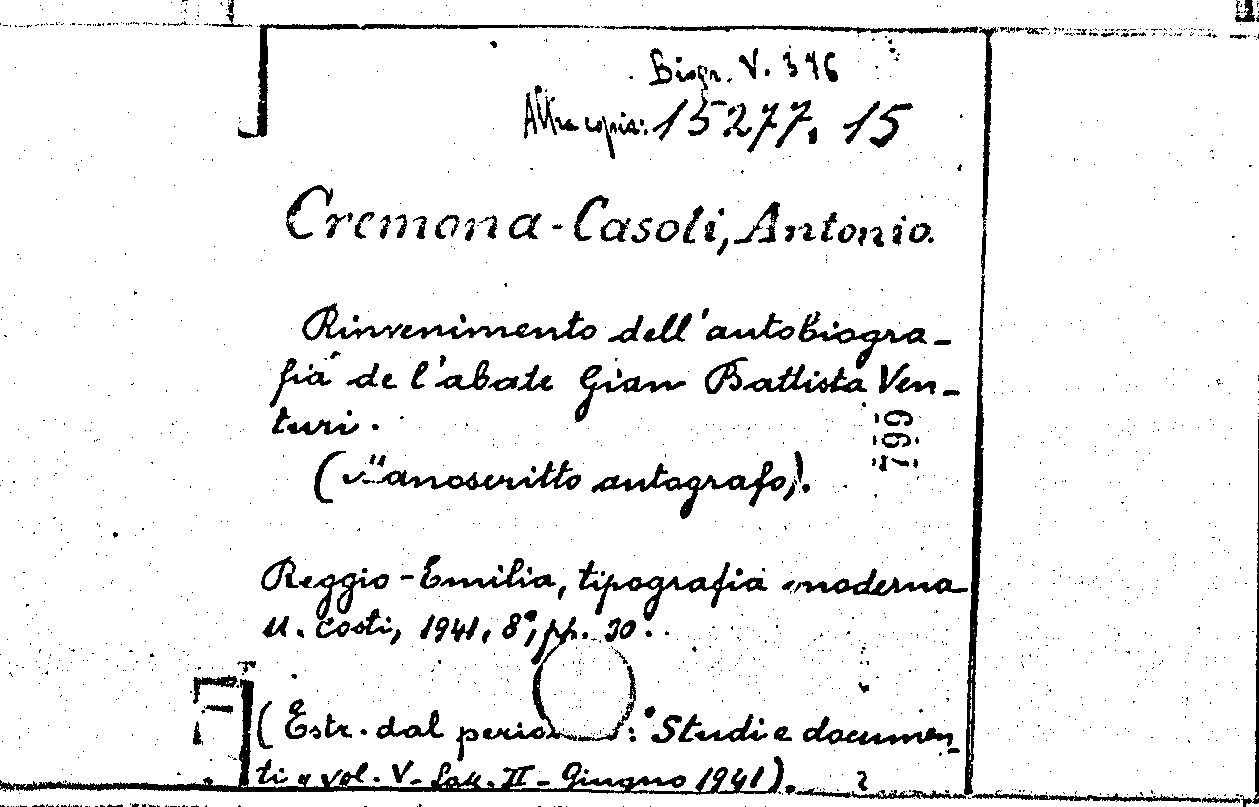 Biogr. V. 376
Altra copia: 15277. 15
Cremona-Casoli, Antonio.
Rinvenimento dell'autobiogra-
fia de l'abate Gian Battista Ven-
turi.
799
(Manoscritto autografo).
Reggio-Emilia, tipografia moderna
U. Costi, 1941, 8°, pp. 30.
(Estr. dal perio : "Studi e documen-
ti" vol. V - fasc. II - Giugno 1941).